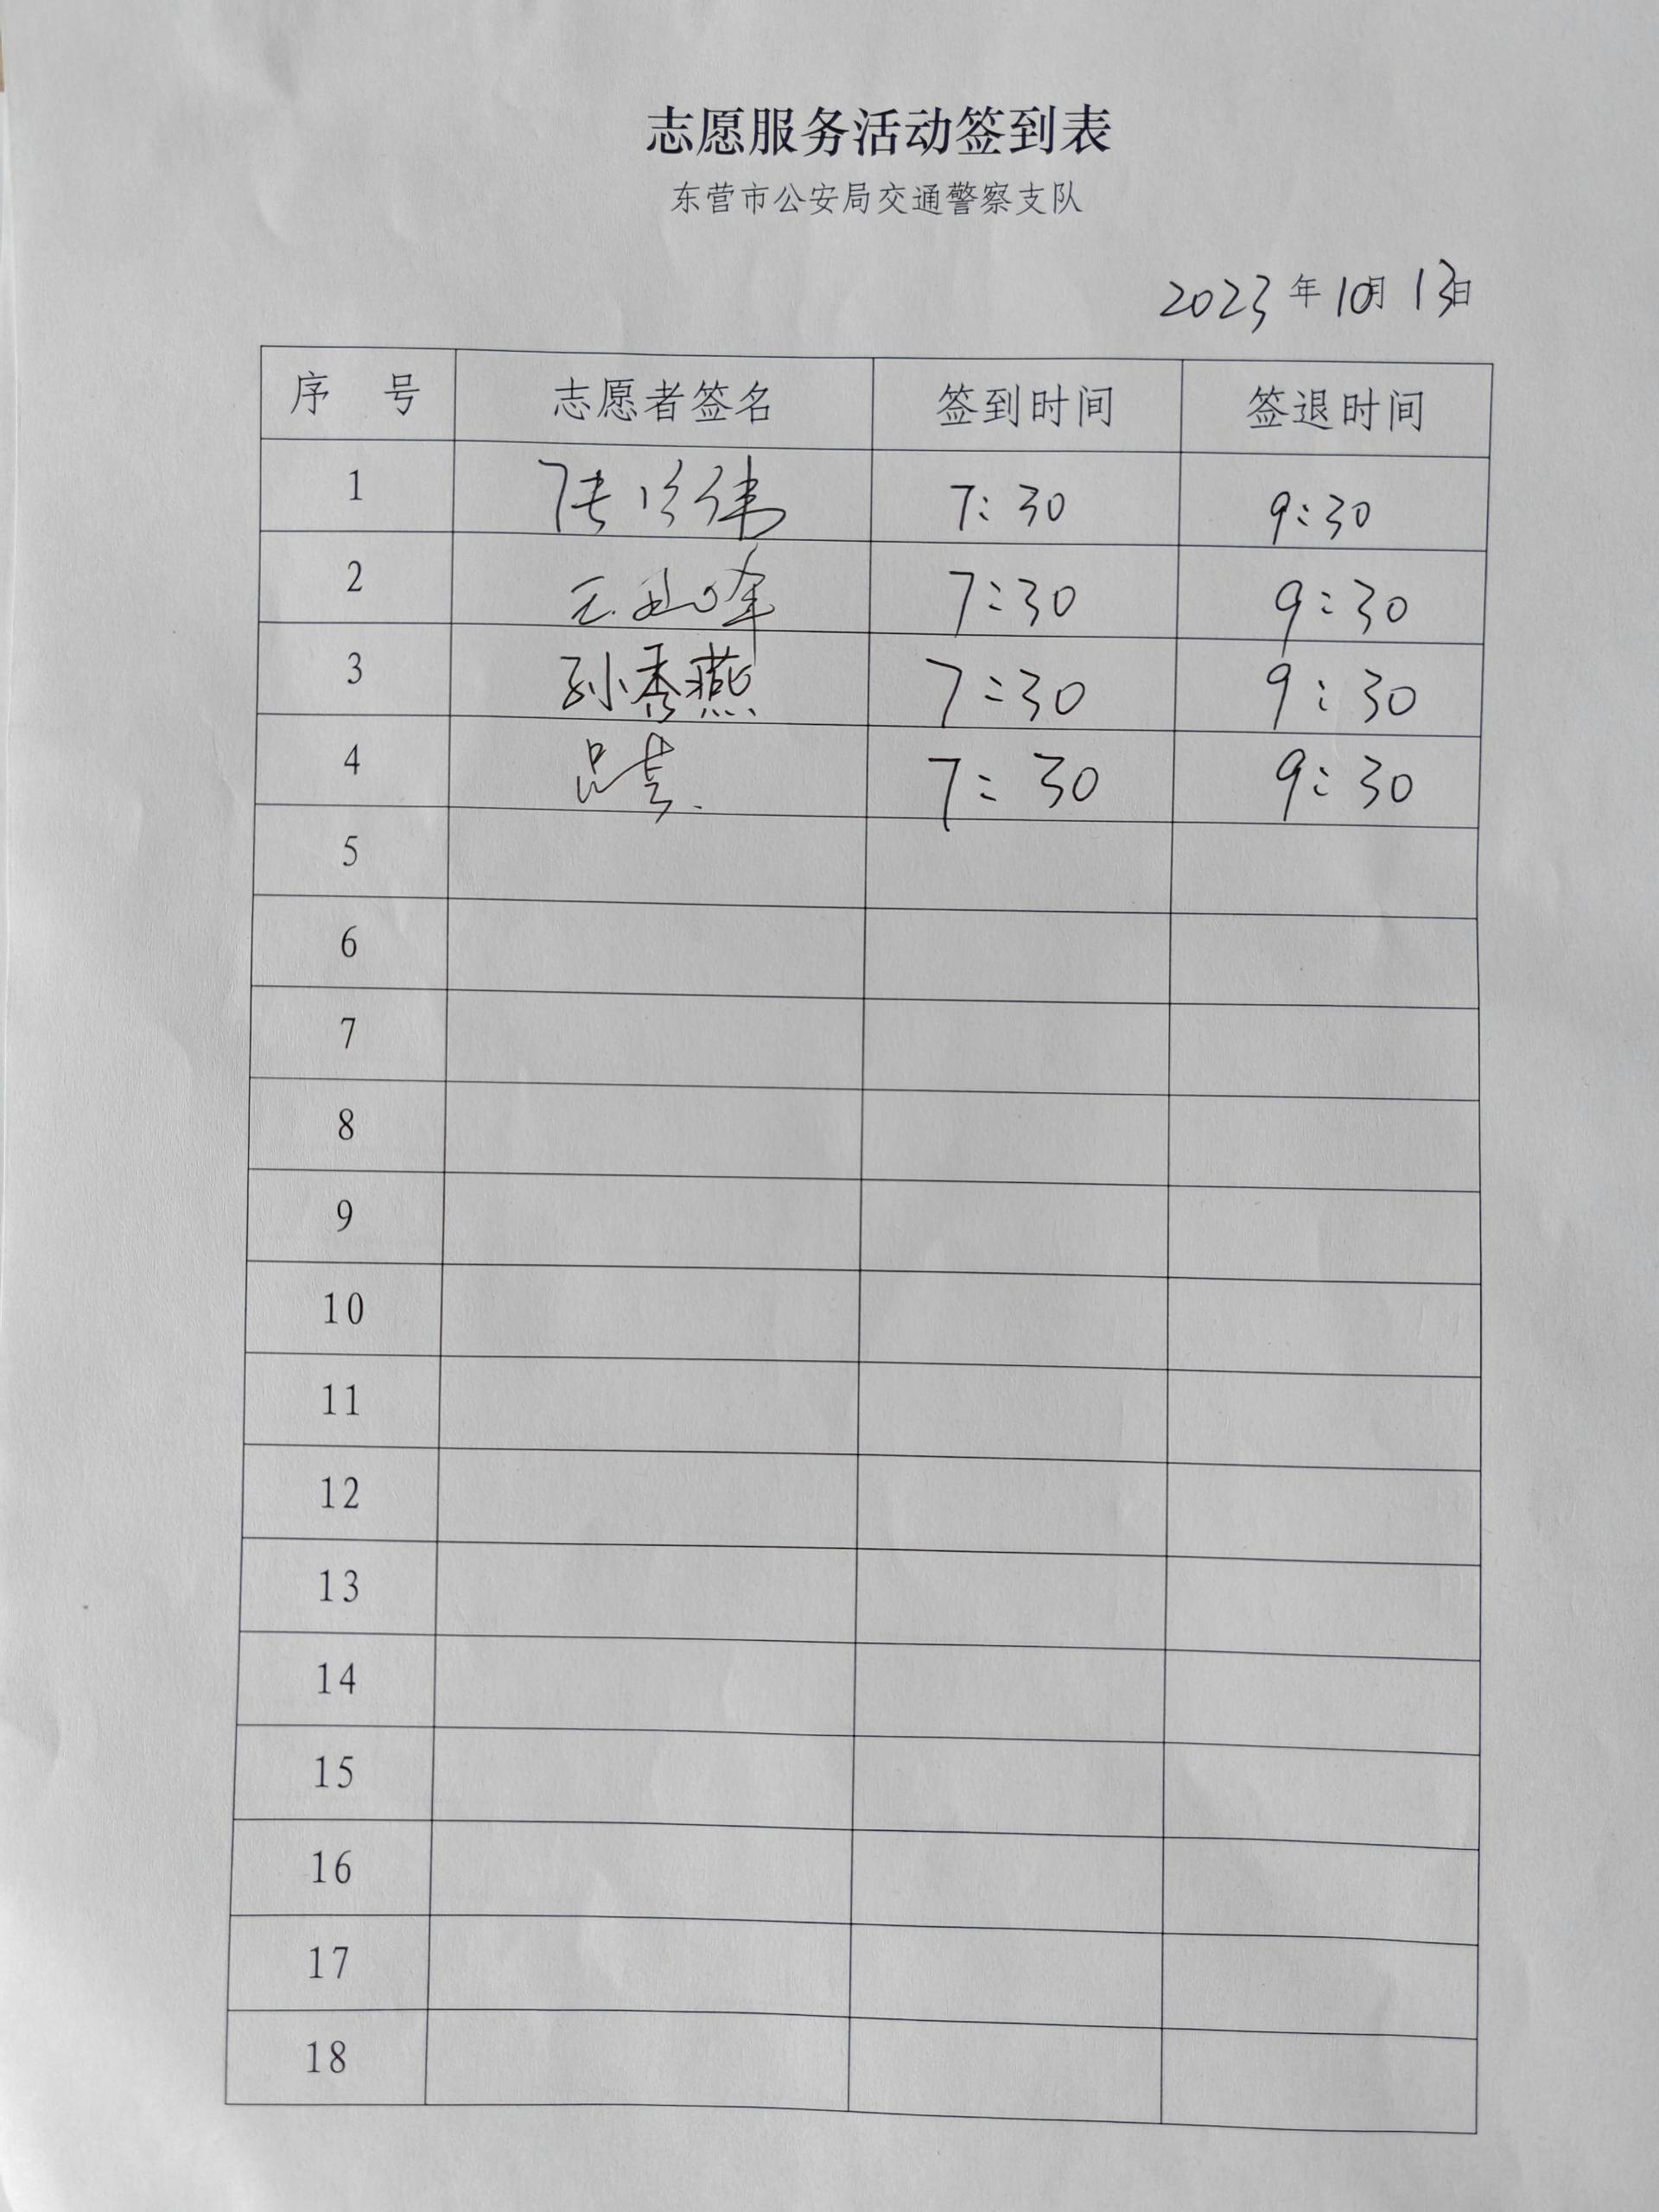 志愿服务活动签到表
东营市公安局交通警察支队
2023年10月13日
序 号 志愿者签名 签到时间 签退时间
1 7:30 9:30
2 7:30 9:30
3 孙秀燕 7:30 9:30
4 7:30 9:30
5
6
7
8
9
10
11
12
13
14
15
16
17
18